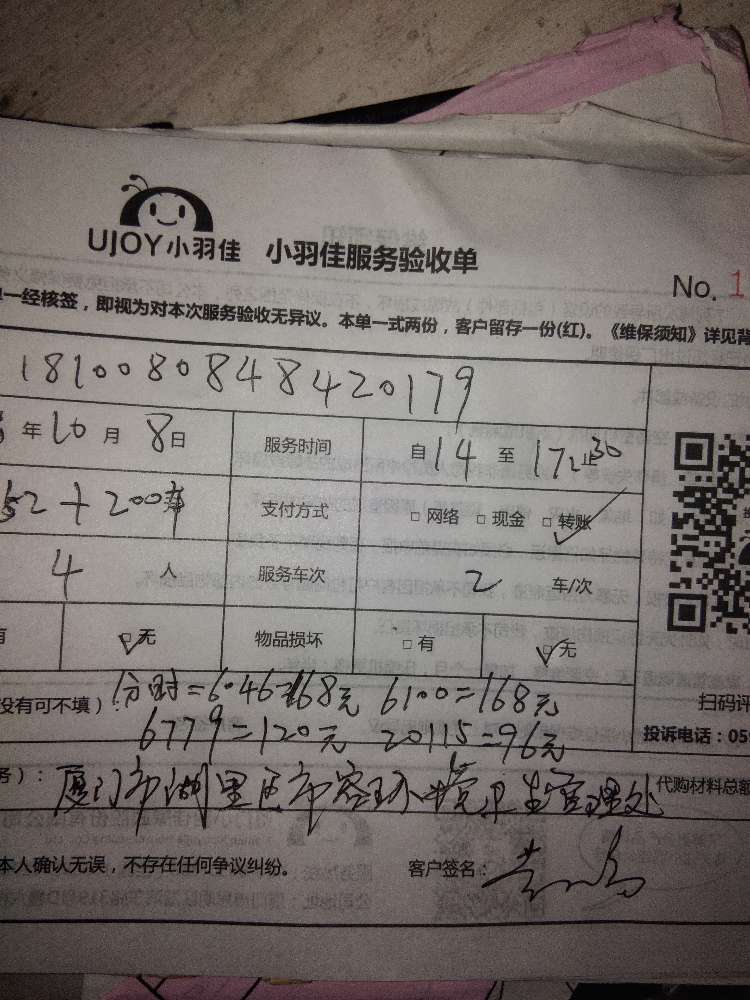 UJOY小羽佳 小羽佳服务验收单
No. 1
一经核签，即视为对本次服务验收无异议。本单一式两份，客户留存一份(红)。《维保须知》详见背
181008084842 0179
年 10 月 8 日 服务时间 自 14 至 17 30 止
52+200 支付方式 □ 网络 □ 现金 ☑ 转账
4 人 服务车次 2 车/次
有 ☑ 无 物品损坏 □ 有 ☑ 无
没有可不填）： 分时=6046=168元 6100=168元
扫码评
6779=120元 20115=96元
投诉电话：059
务）： 厦门市湖里区市容环境卫生管理处 代购材料总额
本人确认无误，不存在任何争议纠纷。 客户签名：